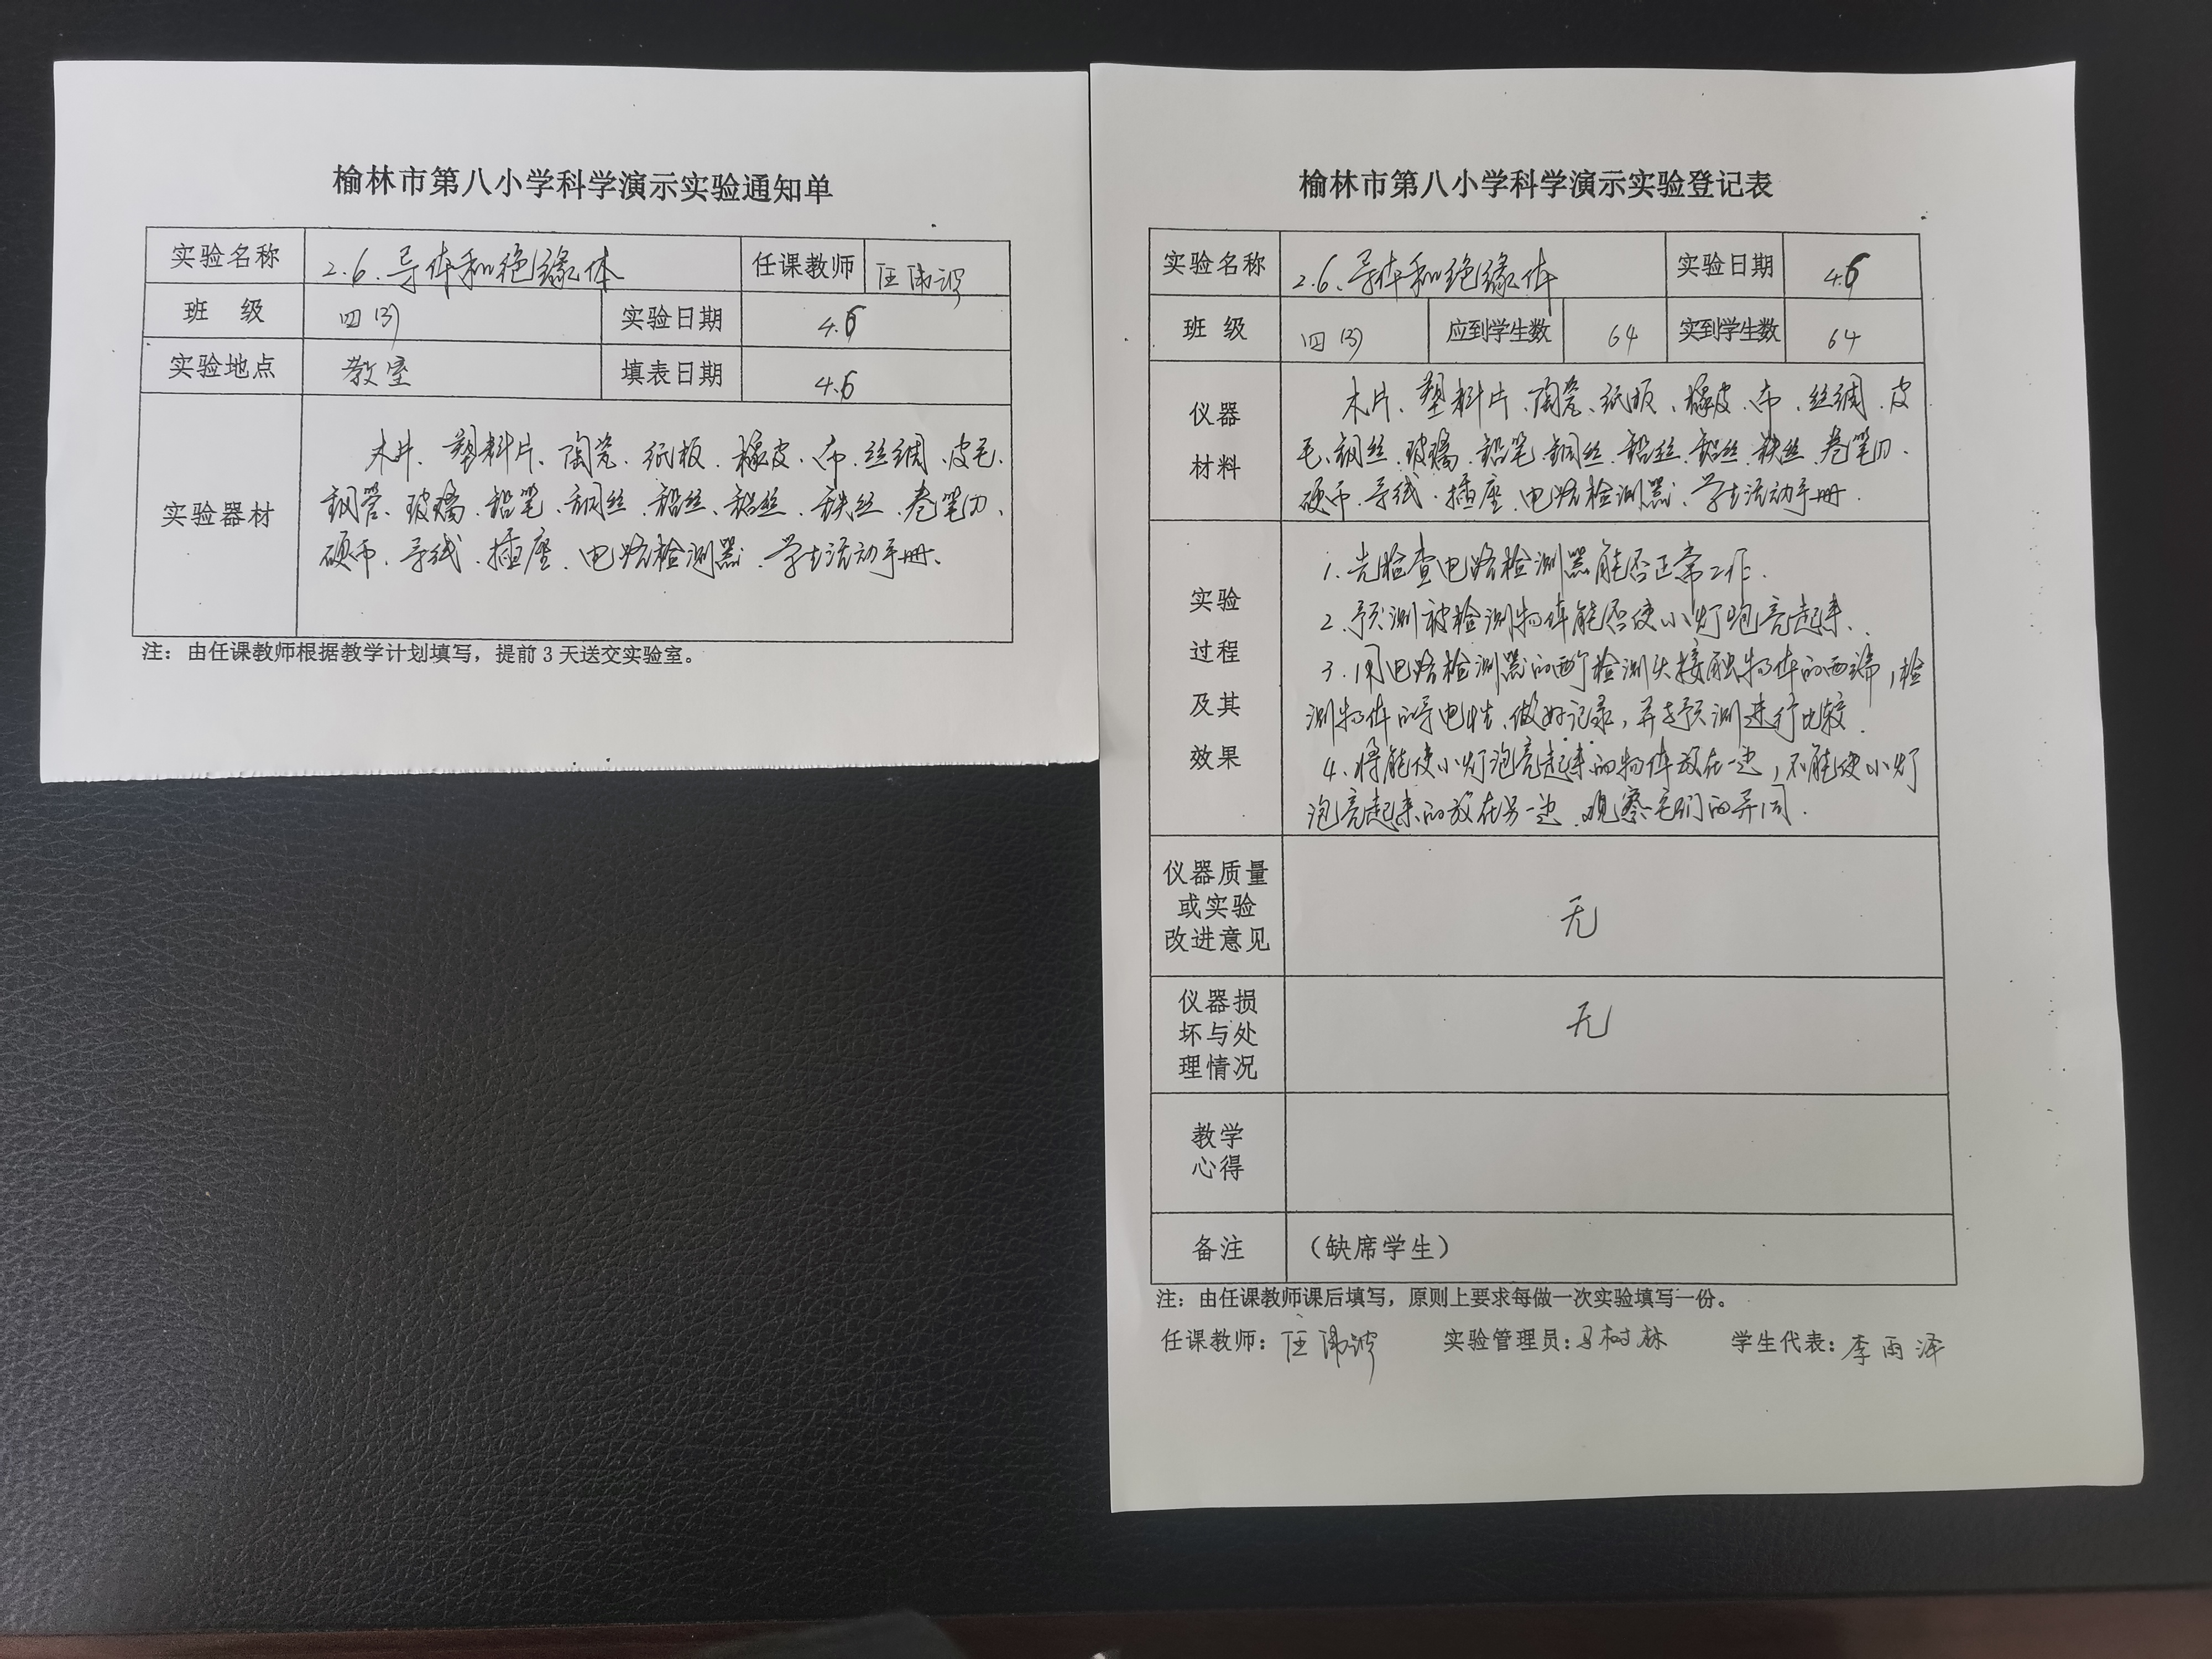 榆林市第八小学科学演示实验通知单
实验名称 2.6.导体和绝缘体 任课教师
班 级 四(3) 实验日期 4.6
实验地点 教室 填表日期 4.6
实验器材
木片、塑料片、陶瓷、纸板、橡皮、布、丝绸、皮毛、
钢管、玻璃、铅笔、铜丝、铅丝、铝丝、铁丝、卷笔刀、
硬币、导线、插座、电路检测器、学生活动手册、
注：由任课教师根据教学计划填写，提前3天送交实验室。
榆林市第八小学科学演示实验登记表
实验名称 2.6.导体和绝缘体 实验日期 4.6
班 级 四(3) 应到学生数 64 实到学生数 64
仪器
材料
木片、塑料片、陶瓷、纸板、橡皮、布、丝绸、皮
毛、钢丝、玻璃、铅笔、铜丝、铅丝、铝丝、铁丝、卷笔刀、
硬币、导线、插座、电路检测器、学生活动手册.
实验
过程
及其
效果
1.先检查电路检测器能否正常工作.
2.预测被检测物体能否使小灯泡亮起来.
3.用电路检测器的两个检测头接触物体的两端，检
测物体的导电性、做好记录，并与预测进行比较.
4.将能使小灯泡亮起来的物体放在一边，不能使小灯
泡亮起来的放在另一边、观察它们的异同.
仪器质量
或实验
改进意见
无
仪器损
坏与处
理情况
无
教学
心得
备注 （缺席学生）
注：由任课教师课后填写，原则上要求每做一次实验填写一份。
任课教师： 实验管理员：马树林 学生代表：李雨泽